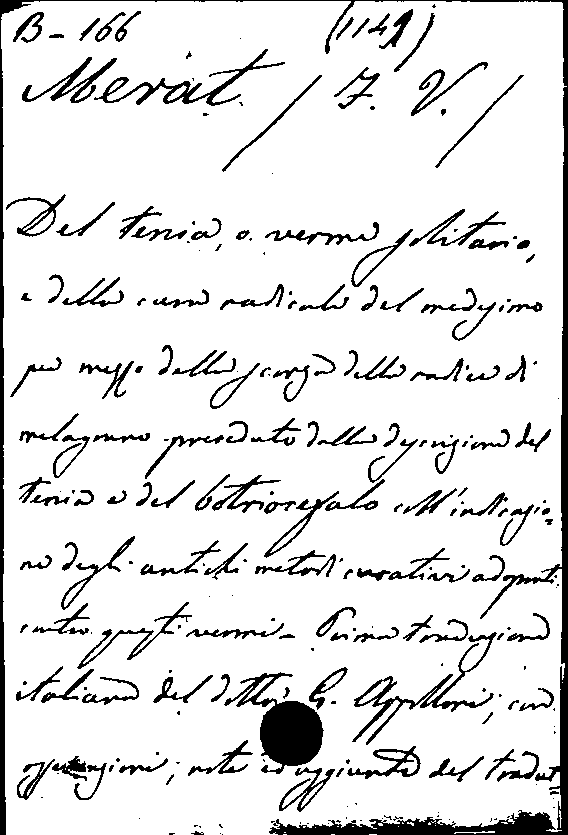 B - 166 (1141)
Merat / F. V. /
Del tenia, o verme solitario,
e della cura radicale del medesimo
per mezzo della scorza della radice di
melagrano preceduto dalla descrizione del
tenia e del botriocefalo coll'indicazio=
ne degli antichi metodi curativi adoprati
contro questi vermi - Prima traduzione
italiana del dottor G. Appolloni; con
osservazioni; note ed aggiunte del tradut=